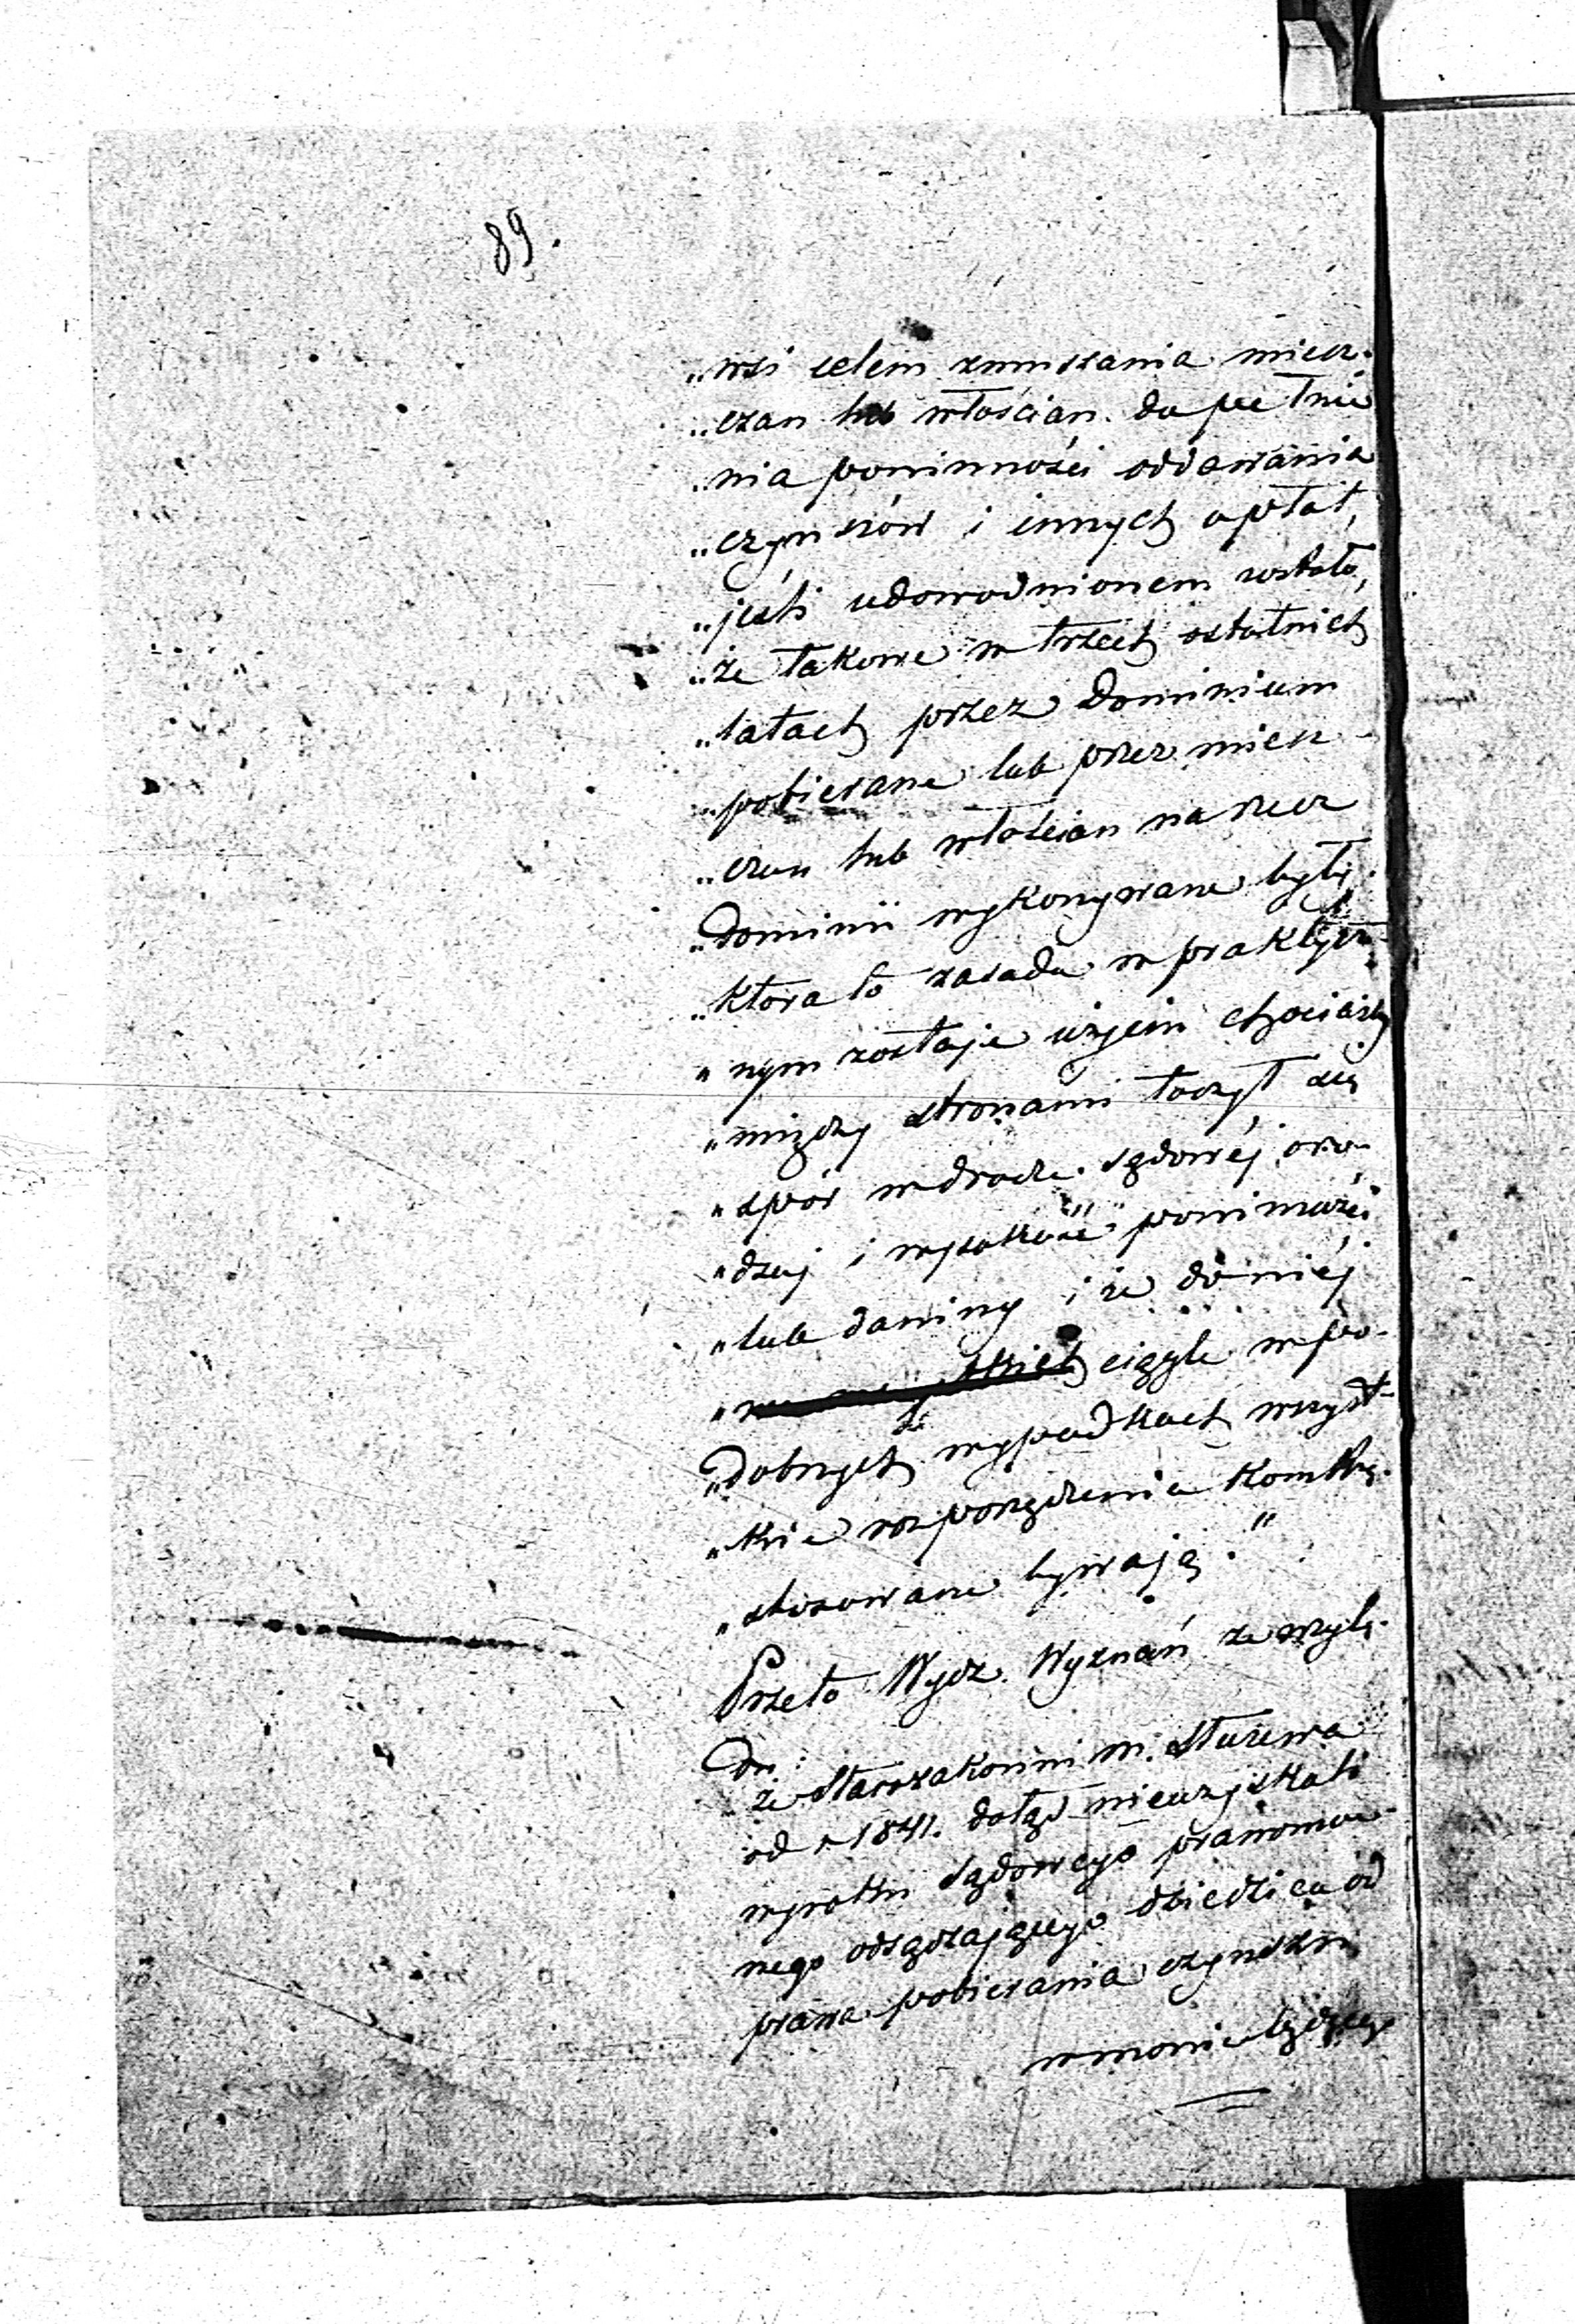 89.
„wsi celem zmuszania miesz-
„czan lub włościan do pełnie
„nia powinności oddawania
„czynszów i innych opłat,
„jeśli udowodnionem zostało,
„że takowe w trzech ostatnich
„latach przez Dominium
„pobierane lub przez miesz-
„czan lub włościan na rzecz
„Dominii wykonywane były.
„która to zasada w praktycz-
„nym zostaje użyciu chociażby
„między stronami toczył się
„spór w drodze sądowéj o ro-
„dzaj i wysokość powinności
„lub daniny i że do niéj
„ciągle w po-
„dobnych wypadkach wszyst-
„kie rozporządzenia Kom Rzą.
„stosowane bywają."
Przeto Wydz. Wyznań zewzglę-
du:
że Starozakonni m. Staszewa
od r 1841. dotąd nieuzyskali
wyroku Sądowego prawomoc-
nego odsądzającego dziedzica od
prawa pobierania czynszu
w mowie będącego